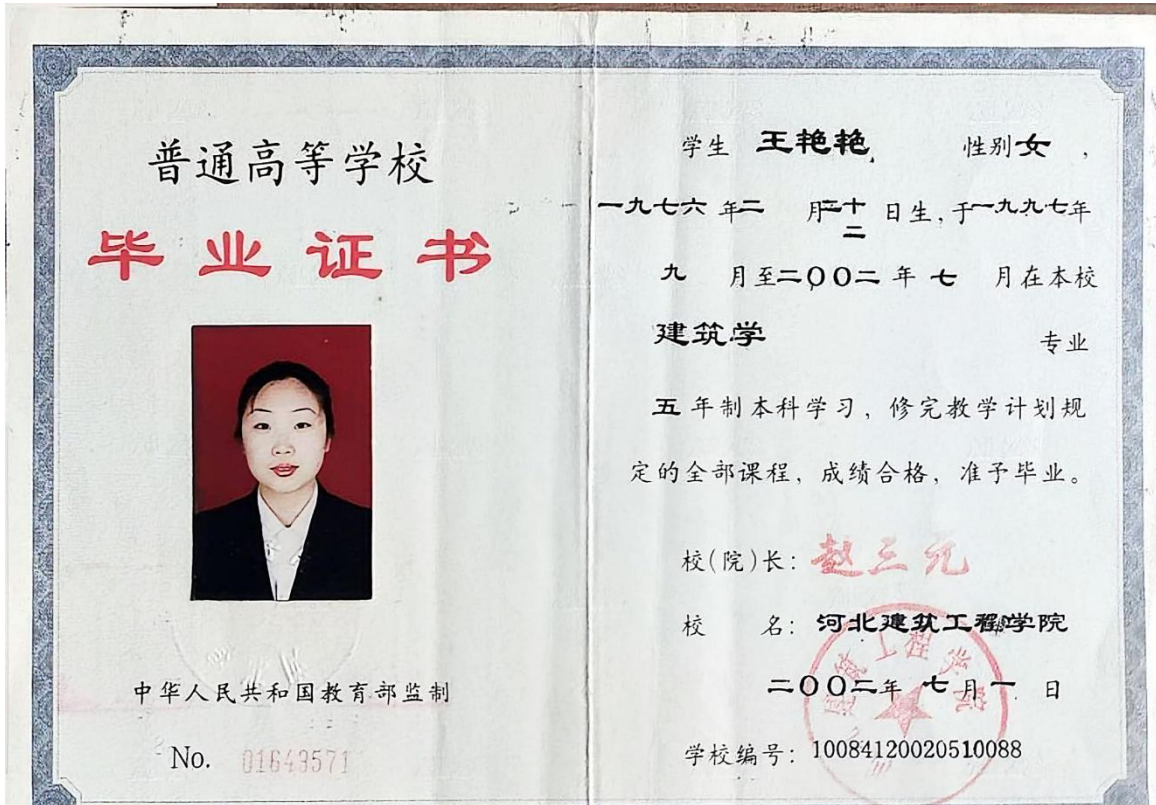 普通高等学校
毕业证书
中华人民共和国教育部监制
No. 01643571
学生 王艳艳 性别女,
一九七六年二月二十二日生,于一九九七年
九月至二〇〇二年七月在本校
建筑学 专业
五年制本科学习,修完教学计划规
定的全部课程,成绩合格,准予毕业。
校(院)长:赵三元
校名:河北建筑工程学院
二〇〇二年七月一日
学校编号:10084120020510088